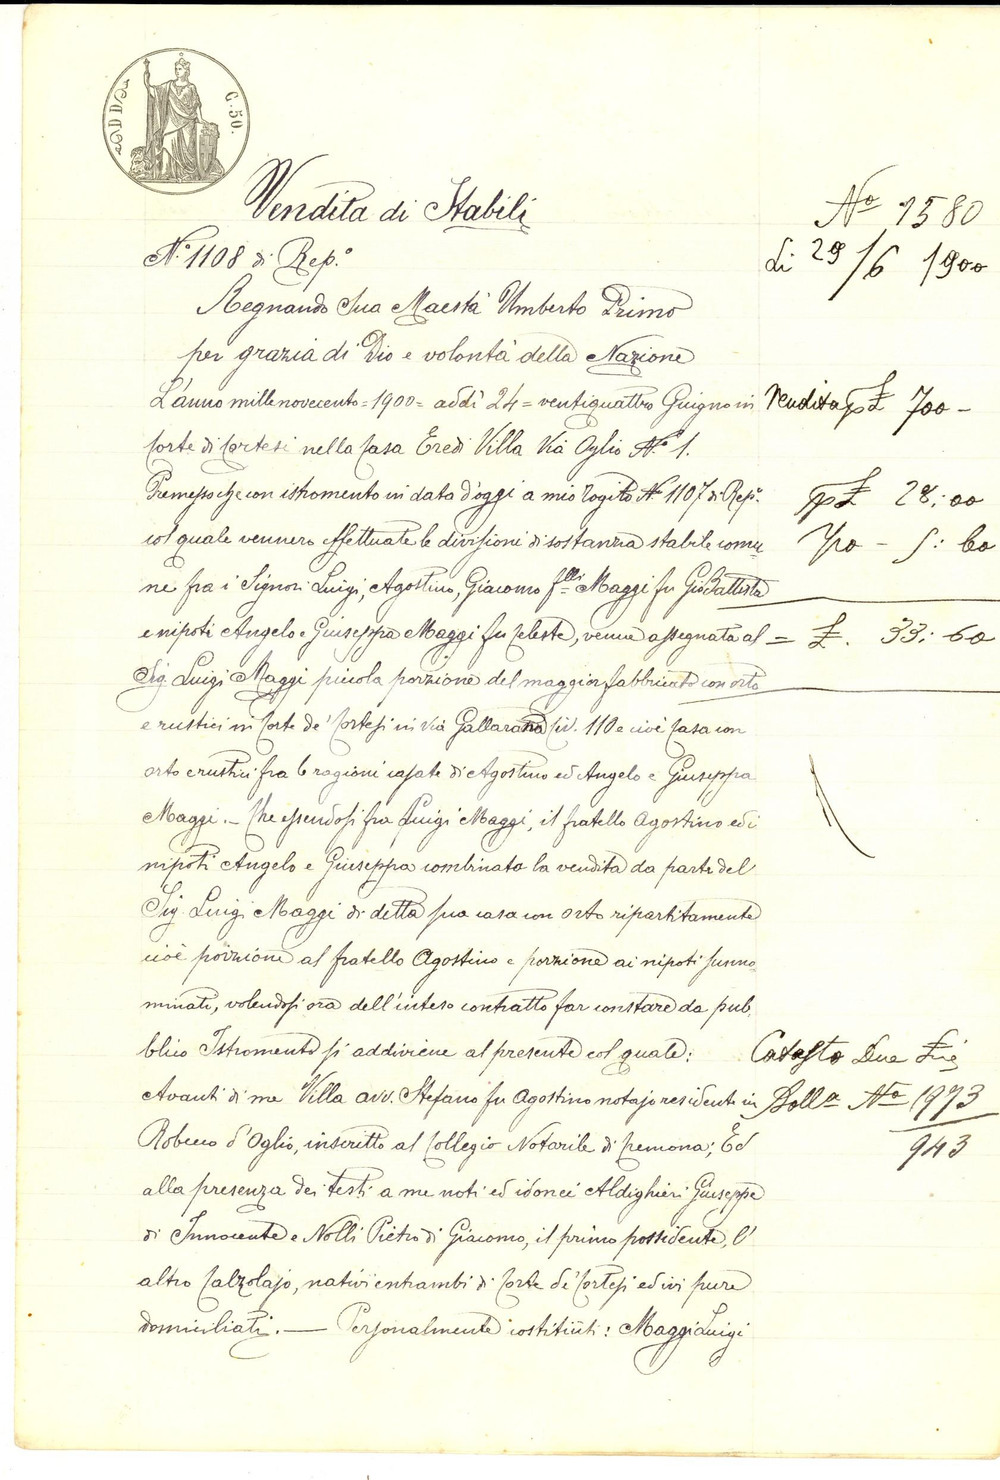 DD
C. 50.
Vendita di Stabili
N.° 1108 di Rep.°
Regnando Sua Maestà Umberto Primo
per grazia di Dio e volontà della Nazione
L'anno millenovecento = 1900 = addì 24 = ventiquattro Giugno in
Corte de' Cortesi nella Casa Eredi Villa Via Oglio N.° 1.
Premesso che con istromento in data d'oggi a mio rogito N.° 1107 di Rep.°
col quale vennero effettuate le divisioni di sostanza stabile comu-
ne fra i Signori Luigi, Agostino, Giacomo f.lli Maggi fu Gio Battista
e nipoti Angelo e Giuseppa Maggi fu Celeste, venne assegnata al
Sig. Luigi Maggi piccola porzione del maggior fabbricato con orto
e rustici in Corte de' Cortesi in via Gallarana Civ. 110 e cioè Casa con
orto e rustici fra le ragioni casate di Agostino ed Angelo e Giuseppa
Maggi. — Che essendosi fra Luigi Maggi, il fratello Agostino ed i
nipoti Angelo e Giuseppa combinato la vendita da parte del
Sig. Luigi Maggi di detta sua casa con orto ripartitamente
cioè porzione al fratello Agostino e porzione ai nipoti sunno-
minati, volendosi ora dell'inteso contratto far constare da pub-
blico Istromento si addiviene al presente col quale:
Avanti di me Villa avv. Stefano fu Agostino notajo residente in
Robecco d'Oglio, inscritto al Collegio Notarile di Cremona; Ed
alla presenza dei testi a me noti ed idonei Aldighieri Giuseppe
di Innocente e Nolli Pietro di Giacomo, il primo possidente, l'
altro Calzolajo, nativi entrambi di Corte de' Cortesi ed ivi pure
domiciliati. — Personalmente costituiti: Maggi Luigi
N° 1580
Li 29/6 1900
Vendita p £ 700 -
p £ 28:00
- 5:60
= £. 33:60
Catasto Due
Boll.a N° 1973
943